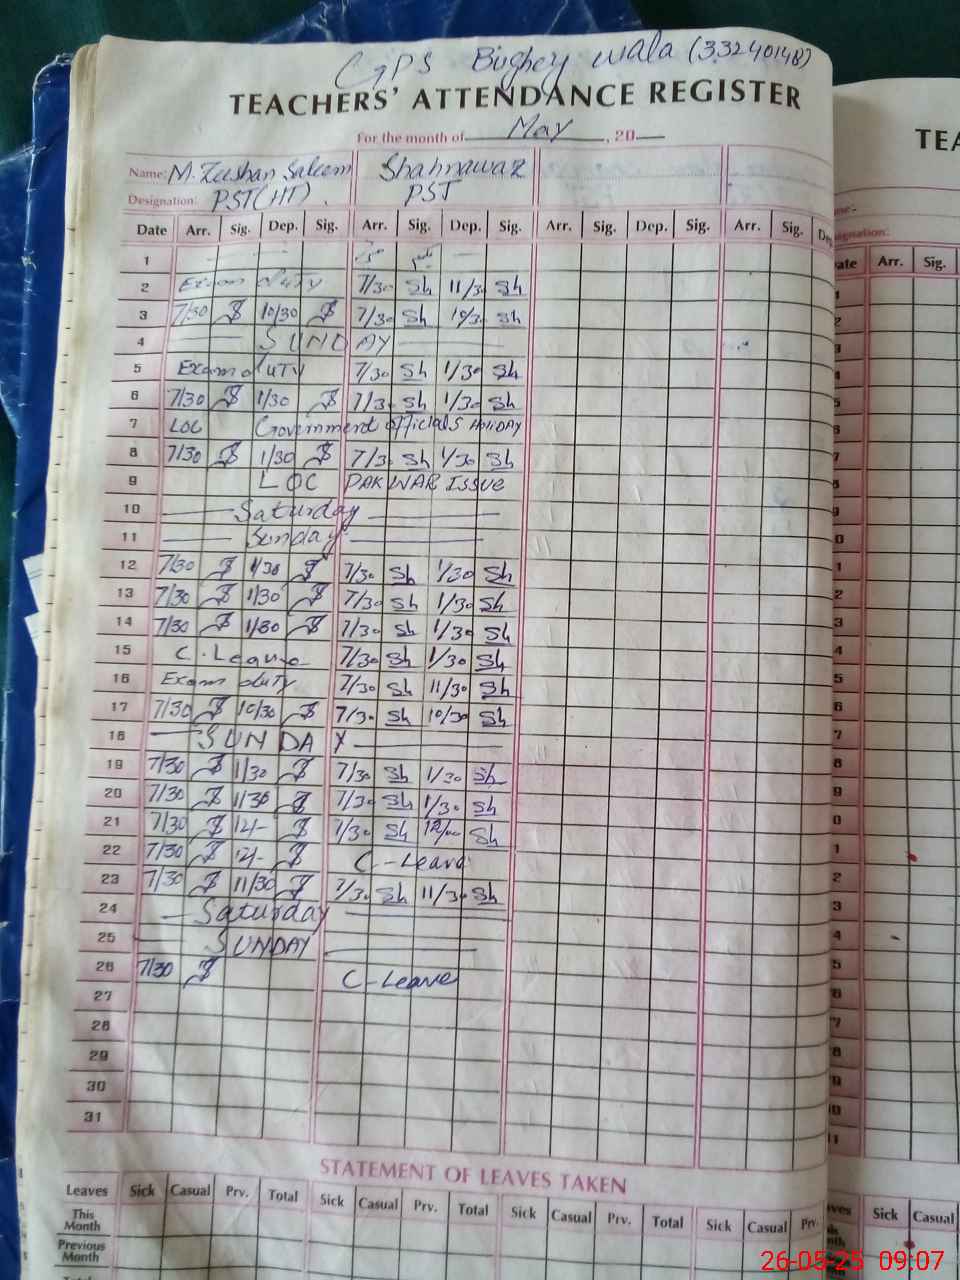 GPS Bughey wala (33240148)
TEACHERS' ATTENDANCE REGISTER TEA
For the month of May , 20
Name: M. Zeeshan Saleem Shahnawaz
Designation: PST(HT) . PST
Date Arr. Sig. Dep. Sig. Arr. Sig. Dep. Sig. Arr. Sig. Dep. Sig. Arr. Sig. Dep Arr. Sig.
1
2 Exam duty 7/30 Sh 11/30 Sh
3 7/30 10/30 7/30 Sh 10/30 Sh
4 SUNDAY
5 Exam duty 7/30 Sh 1/30 Sh
6 7/30 1/30 7/30 Sh 1/30 Sh
7 LOC Government officials HOLIDAY
8 7/30 1/30 7/30 Sh 1/30 Sh
9 LOC PAK WAR ISSUE
10 Saturday
11 Sunday
12 7/30 1/30 7/30 Sh 1/30 Sh
13 7/30 1/30 7/30 Sh 1/30 Sh
14 7/30 1/30 7/30 Sh 1/30 Sh
15 C. Leave 7/30 Sh 1/30 Sh
16 Exam duty 7/30 Sh 11/30 Sh
17 7/30 10/30 7/30 Sh 10/30 Sh
18 SUNDAY
19 7/30 1/30 7/30 Sh 1/30 Sh
20 7/30 1/30 7/30 Sh 1/30 Sh
21 7/30 12/- 7/30 Sh 12/00 Sh
22 7/30 12/- C-Leave
23 7/30 11/30 7/30 Sh 11/30 Sh
24 Saturday
25 SUNDAY
26 7/30 C-Leave
27
28
29
30
31
STATEMENT OF LEAVES TAKEN
Leaves Sick Casual Prv. Total Sick Casual Prv. Total Sick Casual Prv. Total Sick Casual Prv. Sick Casual
This Month
Previous Month
26-05-25 09:07